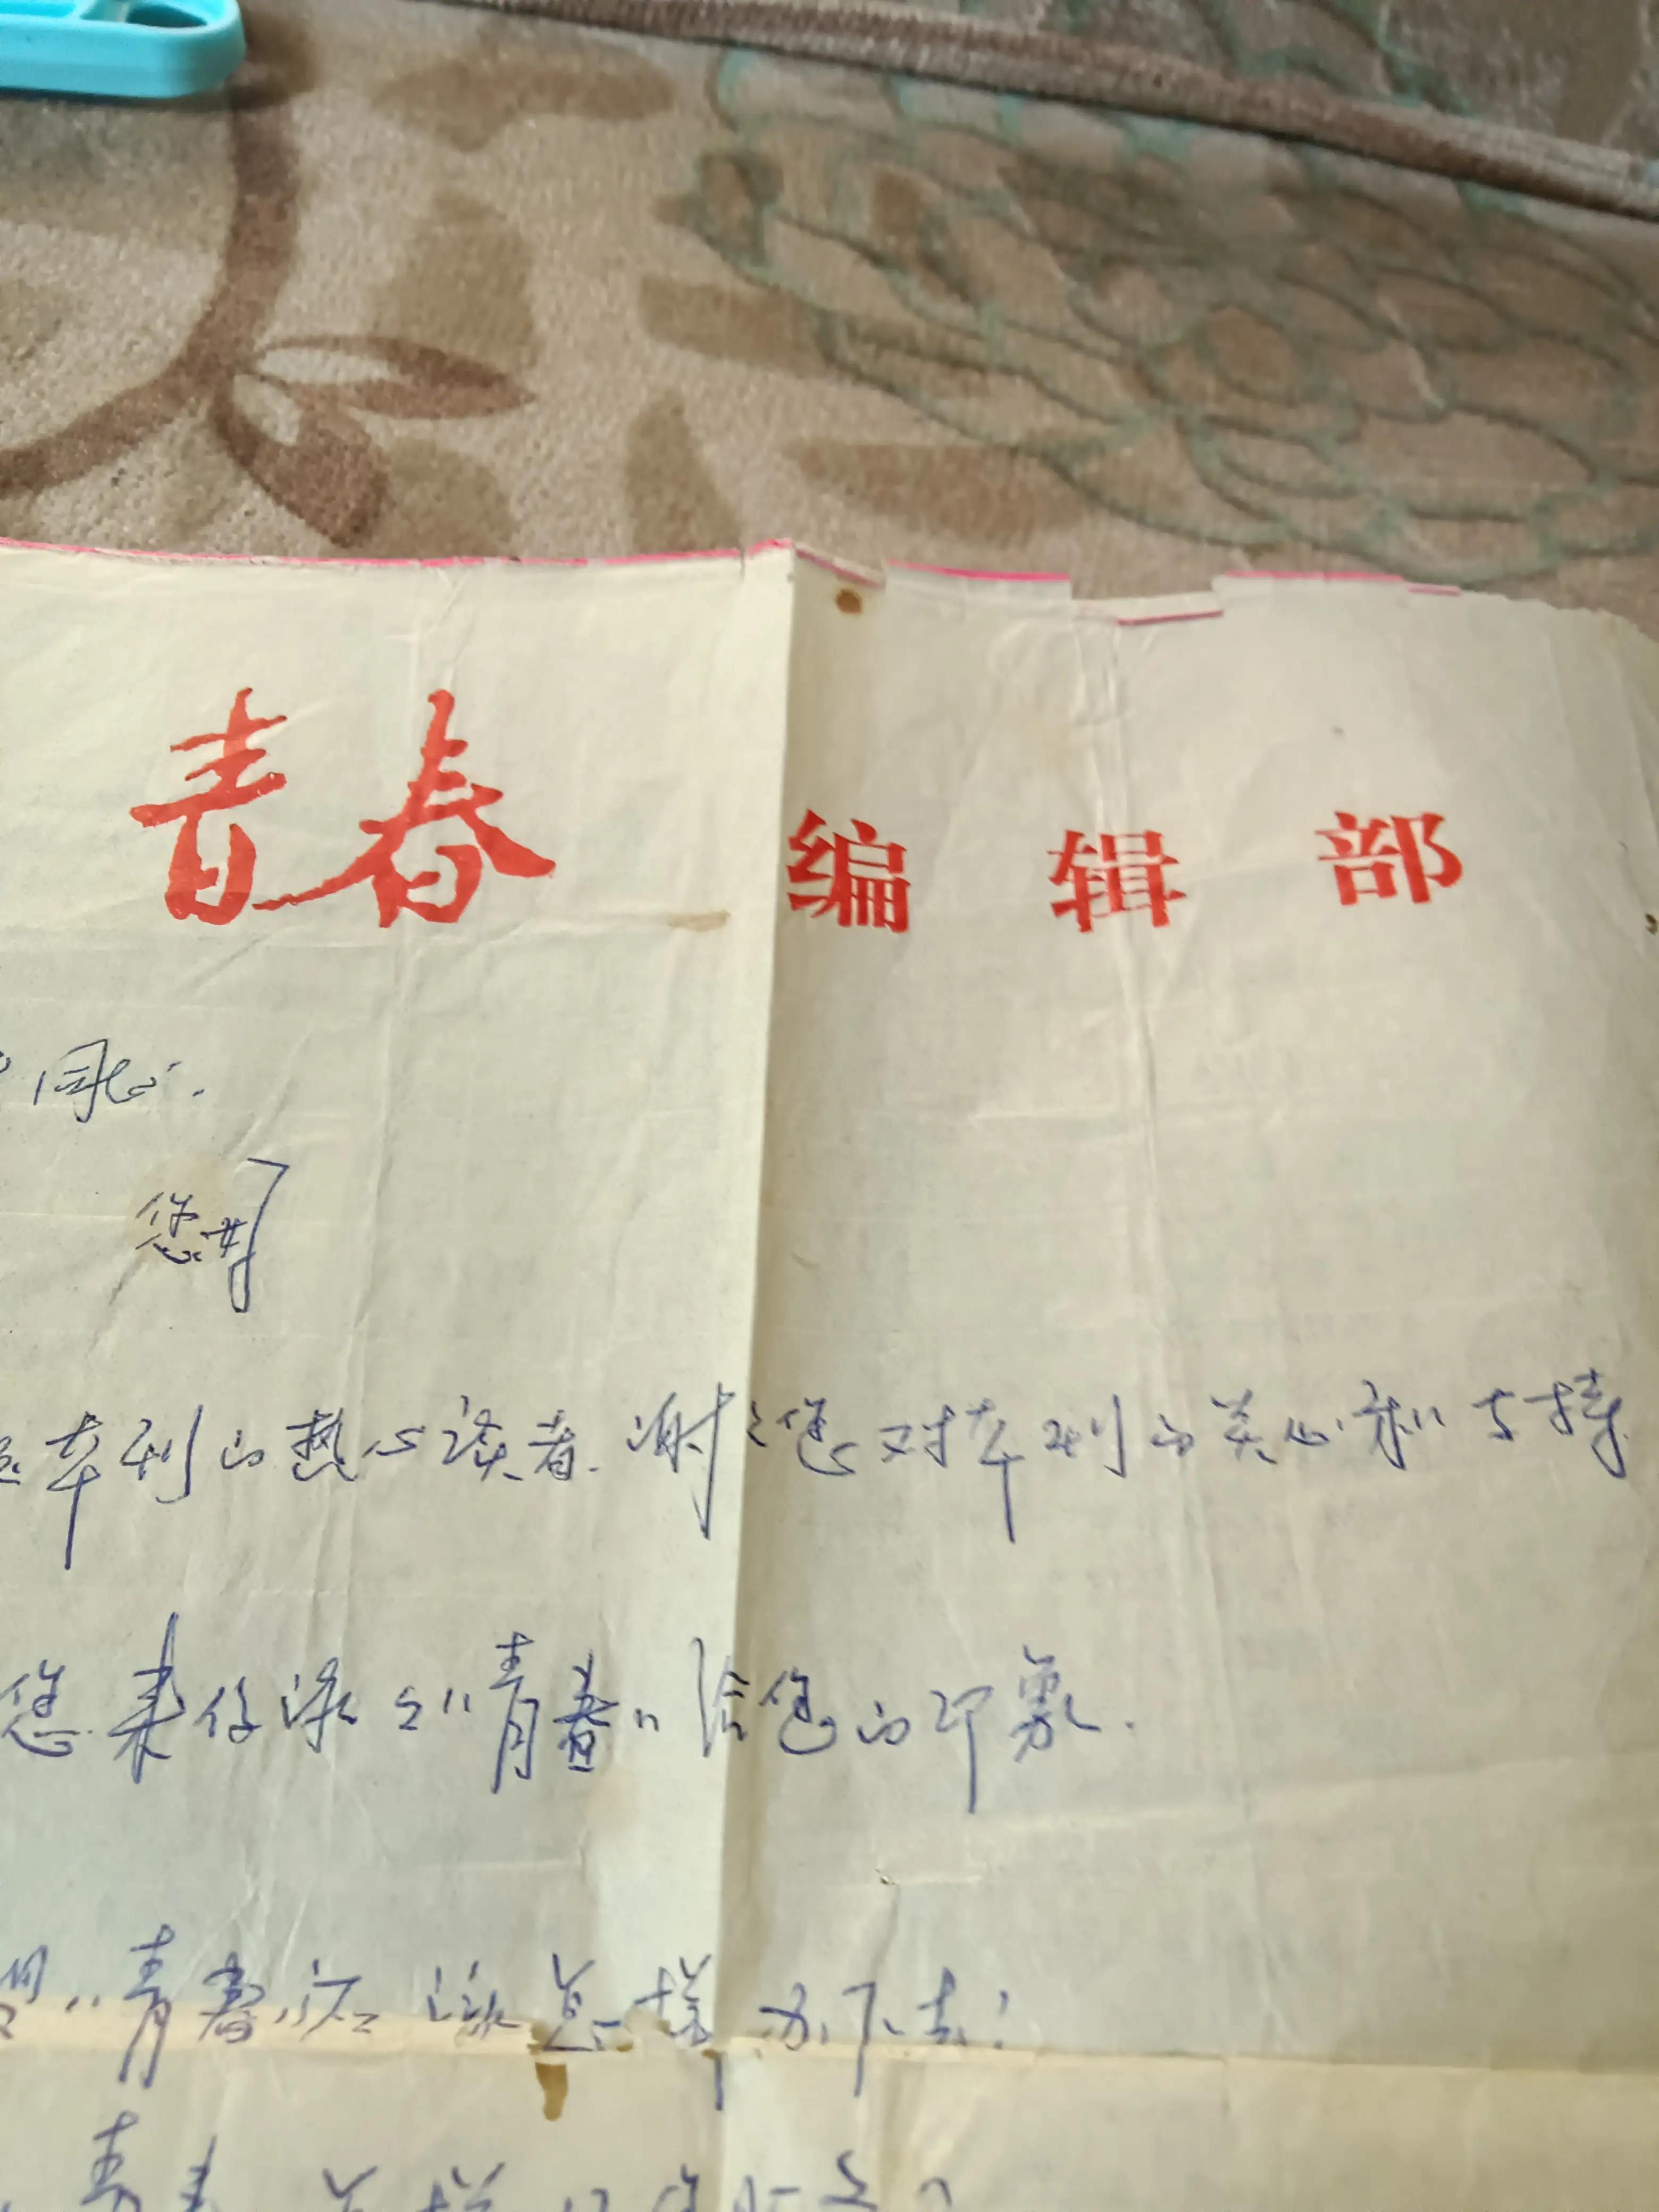 青春 编辑部
同志.
您好
本刊的热心读者.谢谢您对本刊的关心和支持
您来谈谈"青春"给您的印象.
"青春"应该怎样办下去?